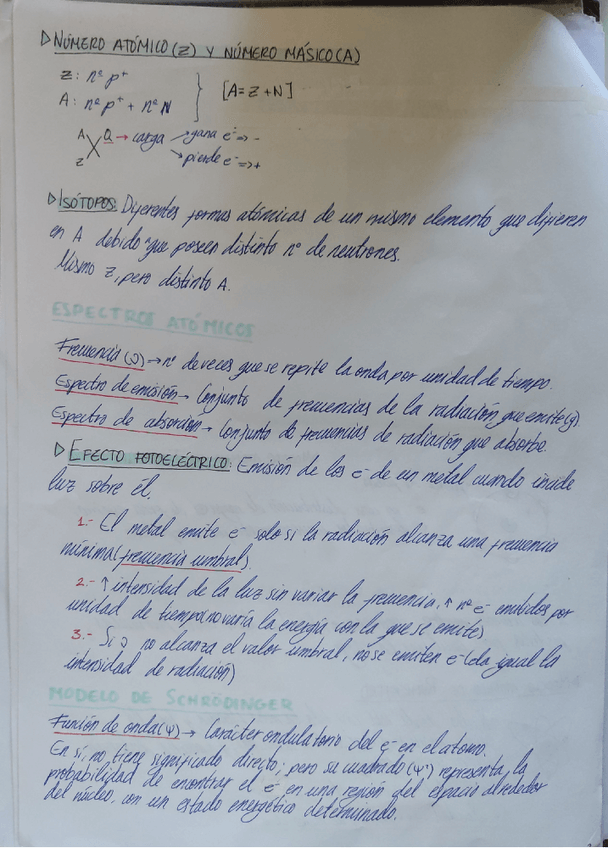 ▷ NÚMERO ATÓMICO (Z) Y NÚMERO MÁSICO (A)
Z: nº p⁺
A: nº p⁺ + nº N
[A = Z + N]
A X Q → carga → gana e⁻ ⇒ -
Z → pierde e⁻ ⇒ +
▷ ISÓTOPOS: Diferentes formas atómicas de un mismo elemento que difieren
en A debido a que poseen distinto nº de neutrones.
Mismo Z, pero distinto A.
ESPECTROS ATÓMICOS
Frecuencia (ν) → nº de veces que se repite la onda por unidad de tiempo.
Espectro de emisión → Conjunto de frecuencias de la radiación que emite (g)
Espectro de absorción → Conjunto de frecuencias de radiación que absorbe.
▷ EFECTO FOTOELÉCTRICO: Emisión de los e⁻ de un metal cuando incide
luz sobre él.
1.- El metal emite e⁻ solo si la radiación alcanza una frecuencia
mínima (frecuencia umbral).
2.- ↑ intensidad de la luz sin variar la frecuencia, ↑ nº e⁻ emitidos por
unidad de tiempo (no varía la energía con la que se emite)
3.- Si ν no alcanza el valor umbral, no se emiten e⁻ (da igual la
intensidad de radiación)
MODELO DE SCHRÖDINGER
Función de onda (Ψ) → Carácter ondulatorio del e⁻ en el átomo.
En sí, no tiene significado directo; pero su cuadrado (Ψ²) representa la
probabilidad de encontrar el e⁻ en una región del espacio alrededor
del núcleo, con un estado energético determinado.